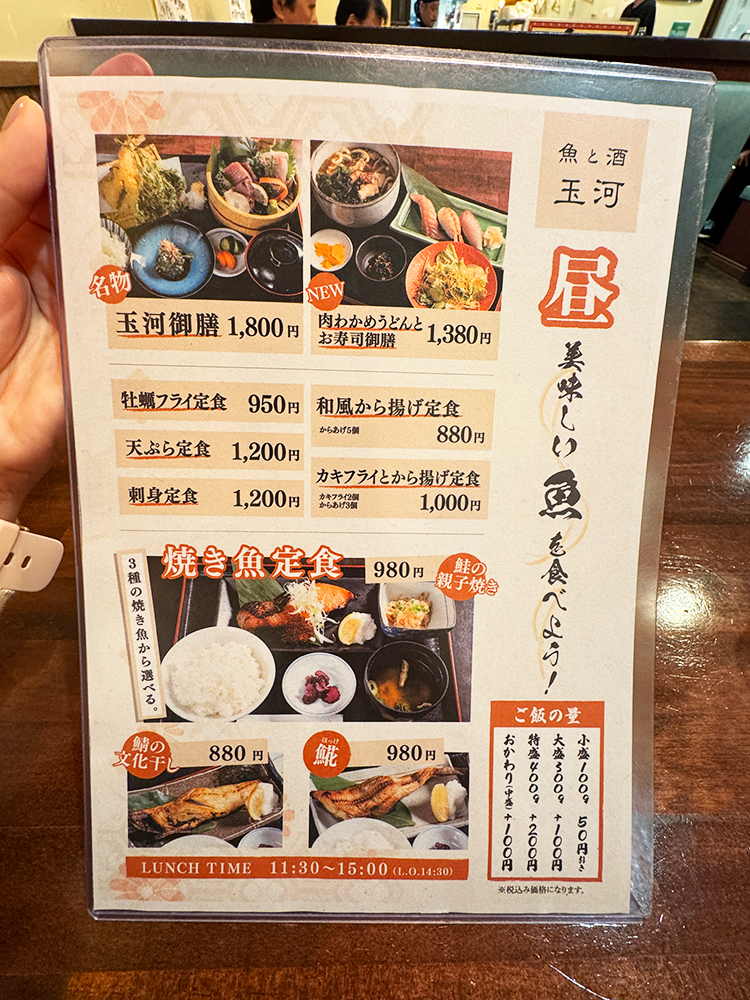 魚と酒
玉河
昼
美味しい魚を食べよう!
名物
玉河御膳 1,800円
NEW
肉わかめうどんと
お寿司御膳 1,380円
牡蠣フライ定食 950円
天ぷら定食 1,200円
刺身定食 1,200円
和風から揚げ定食
からあげ5個
880円
カキフライとから揚げ定食
カキフライ2個
からあげ3個
1,000円
焼き魚定食
3種の焼き魚から選べる。
980円
鮭の
親子焼き
鯖の
文化干し
880円
ほっけ
𩸽
980円
ご飯の量
小盛100g 50円引き
大盛300g +100円
特盛400g +200円
おかわり(中盛)+100円
LUNCH TIME 11:30~15:00 (L.O.14:30)
※税込み価格になります。